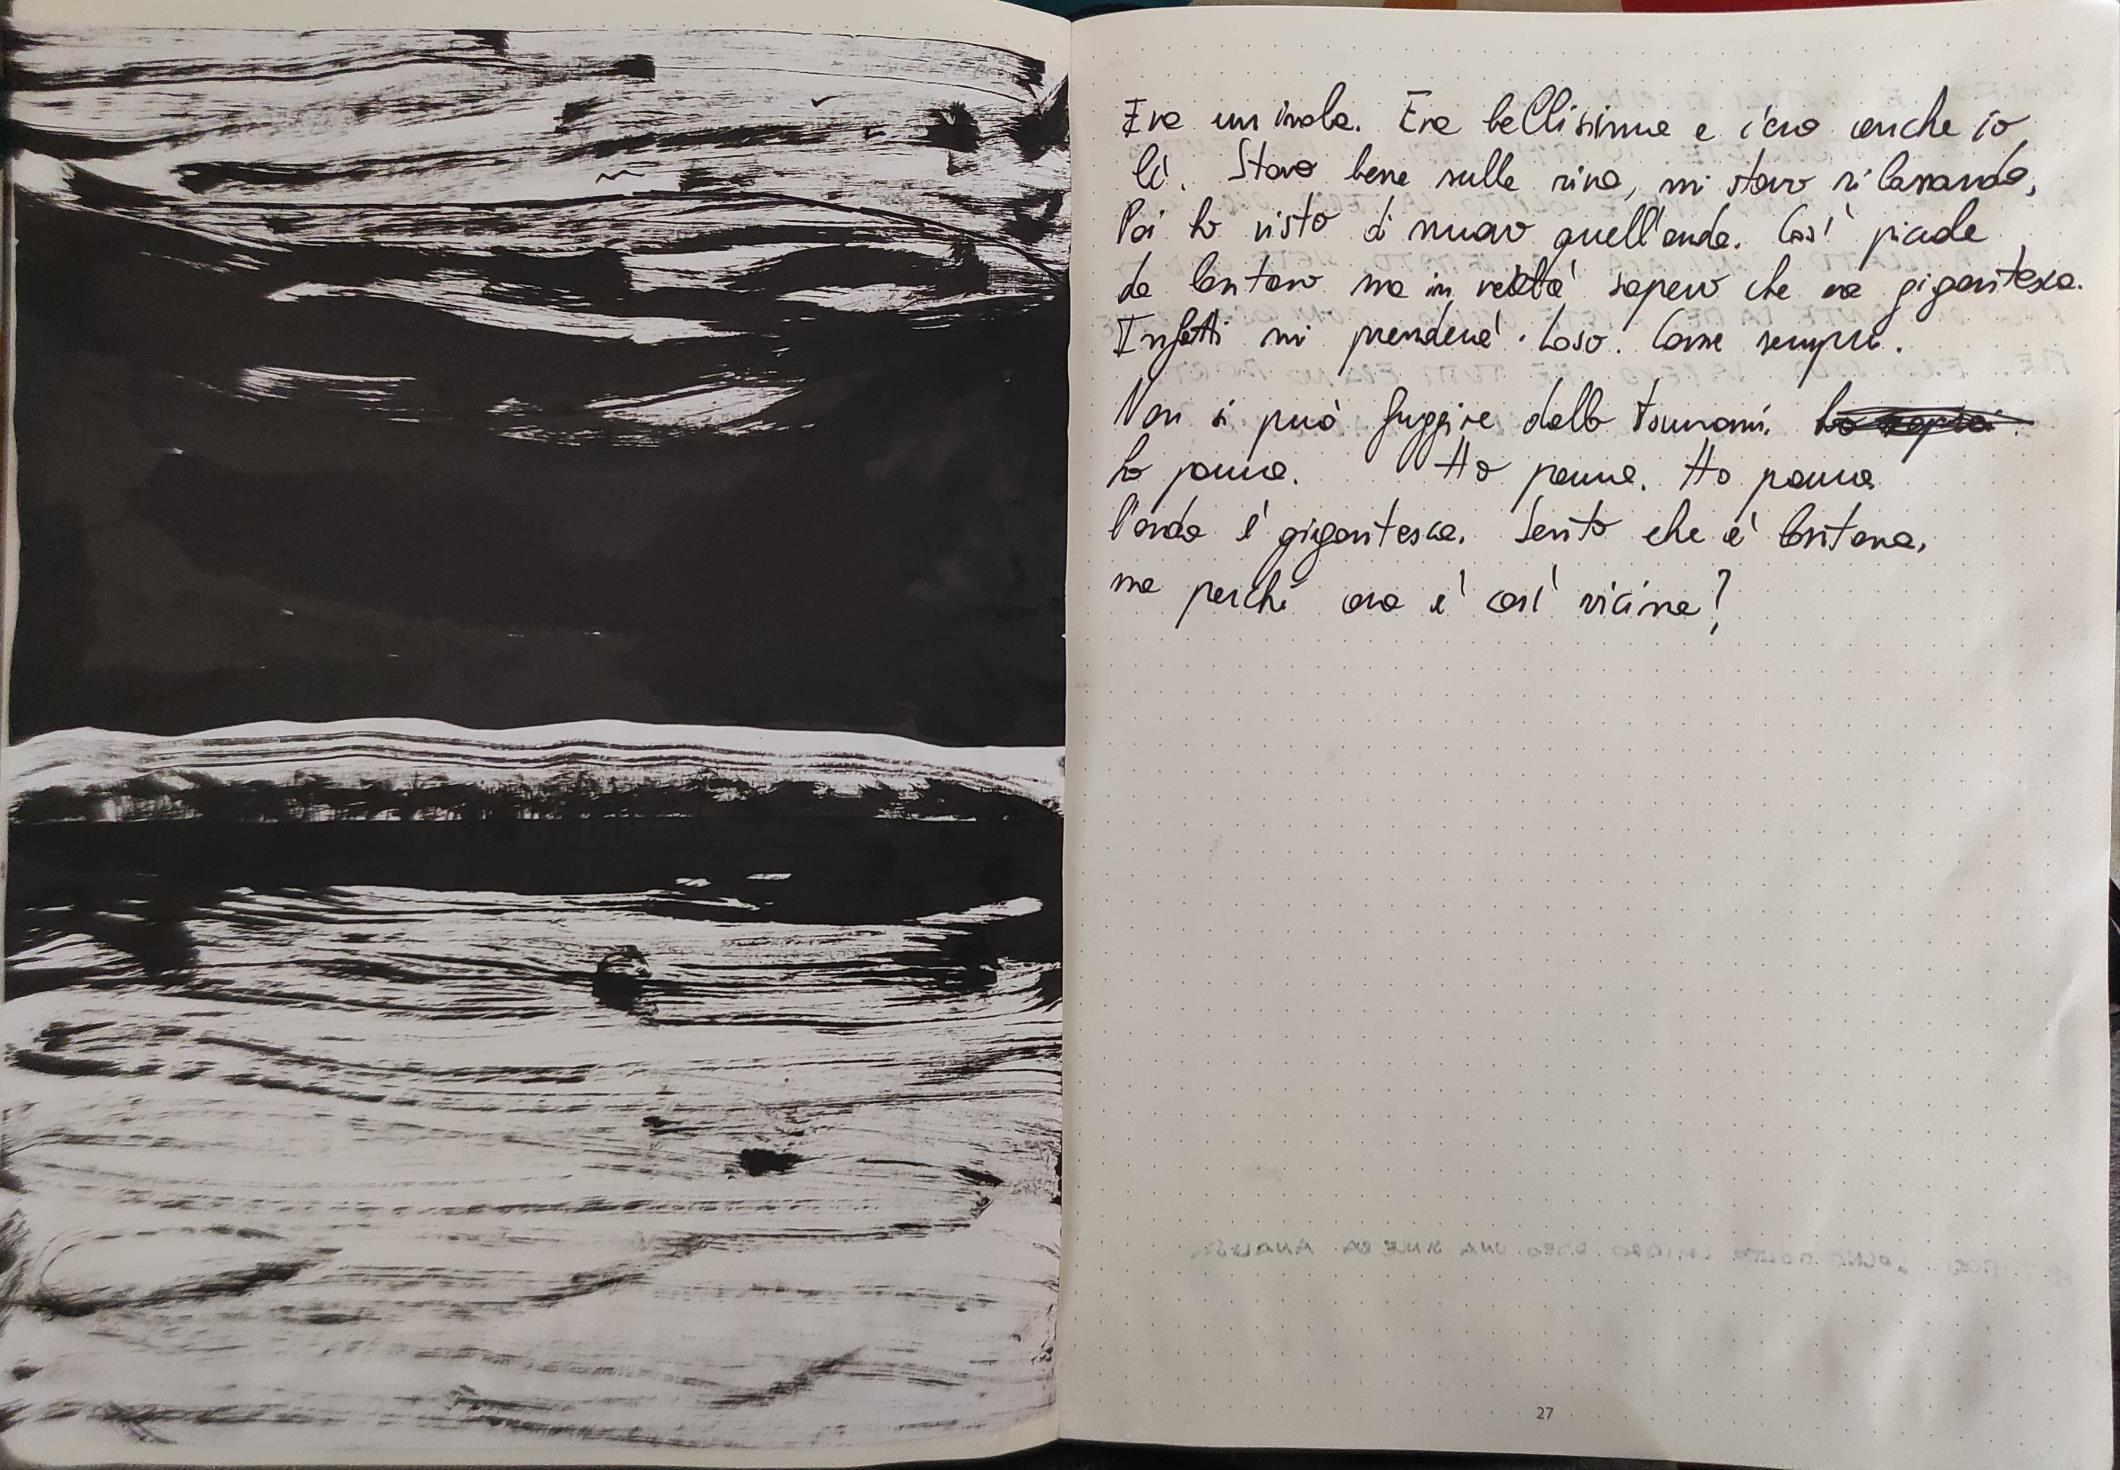 Era un isola. Era bellissima e c'ero anche io
lì. Stavo bene sulla riva, mi stavo rilassando,
Poi ho visto di nuovo quell'onda. Così piccola
da lontano ma in realtà sapevo che era gigantesca.
Infatti mi prenderà. Lo so. Come sempre.
Non si può fuggire dallo tsunami.
Ho paura. Ho paura. Ho paura
l'onda è gigantesca. Sento che è lontana,
ma perché ora è così vicina?
27